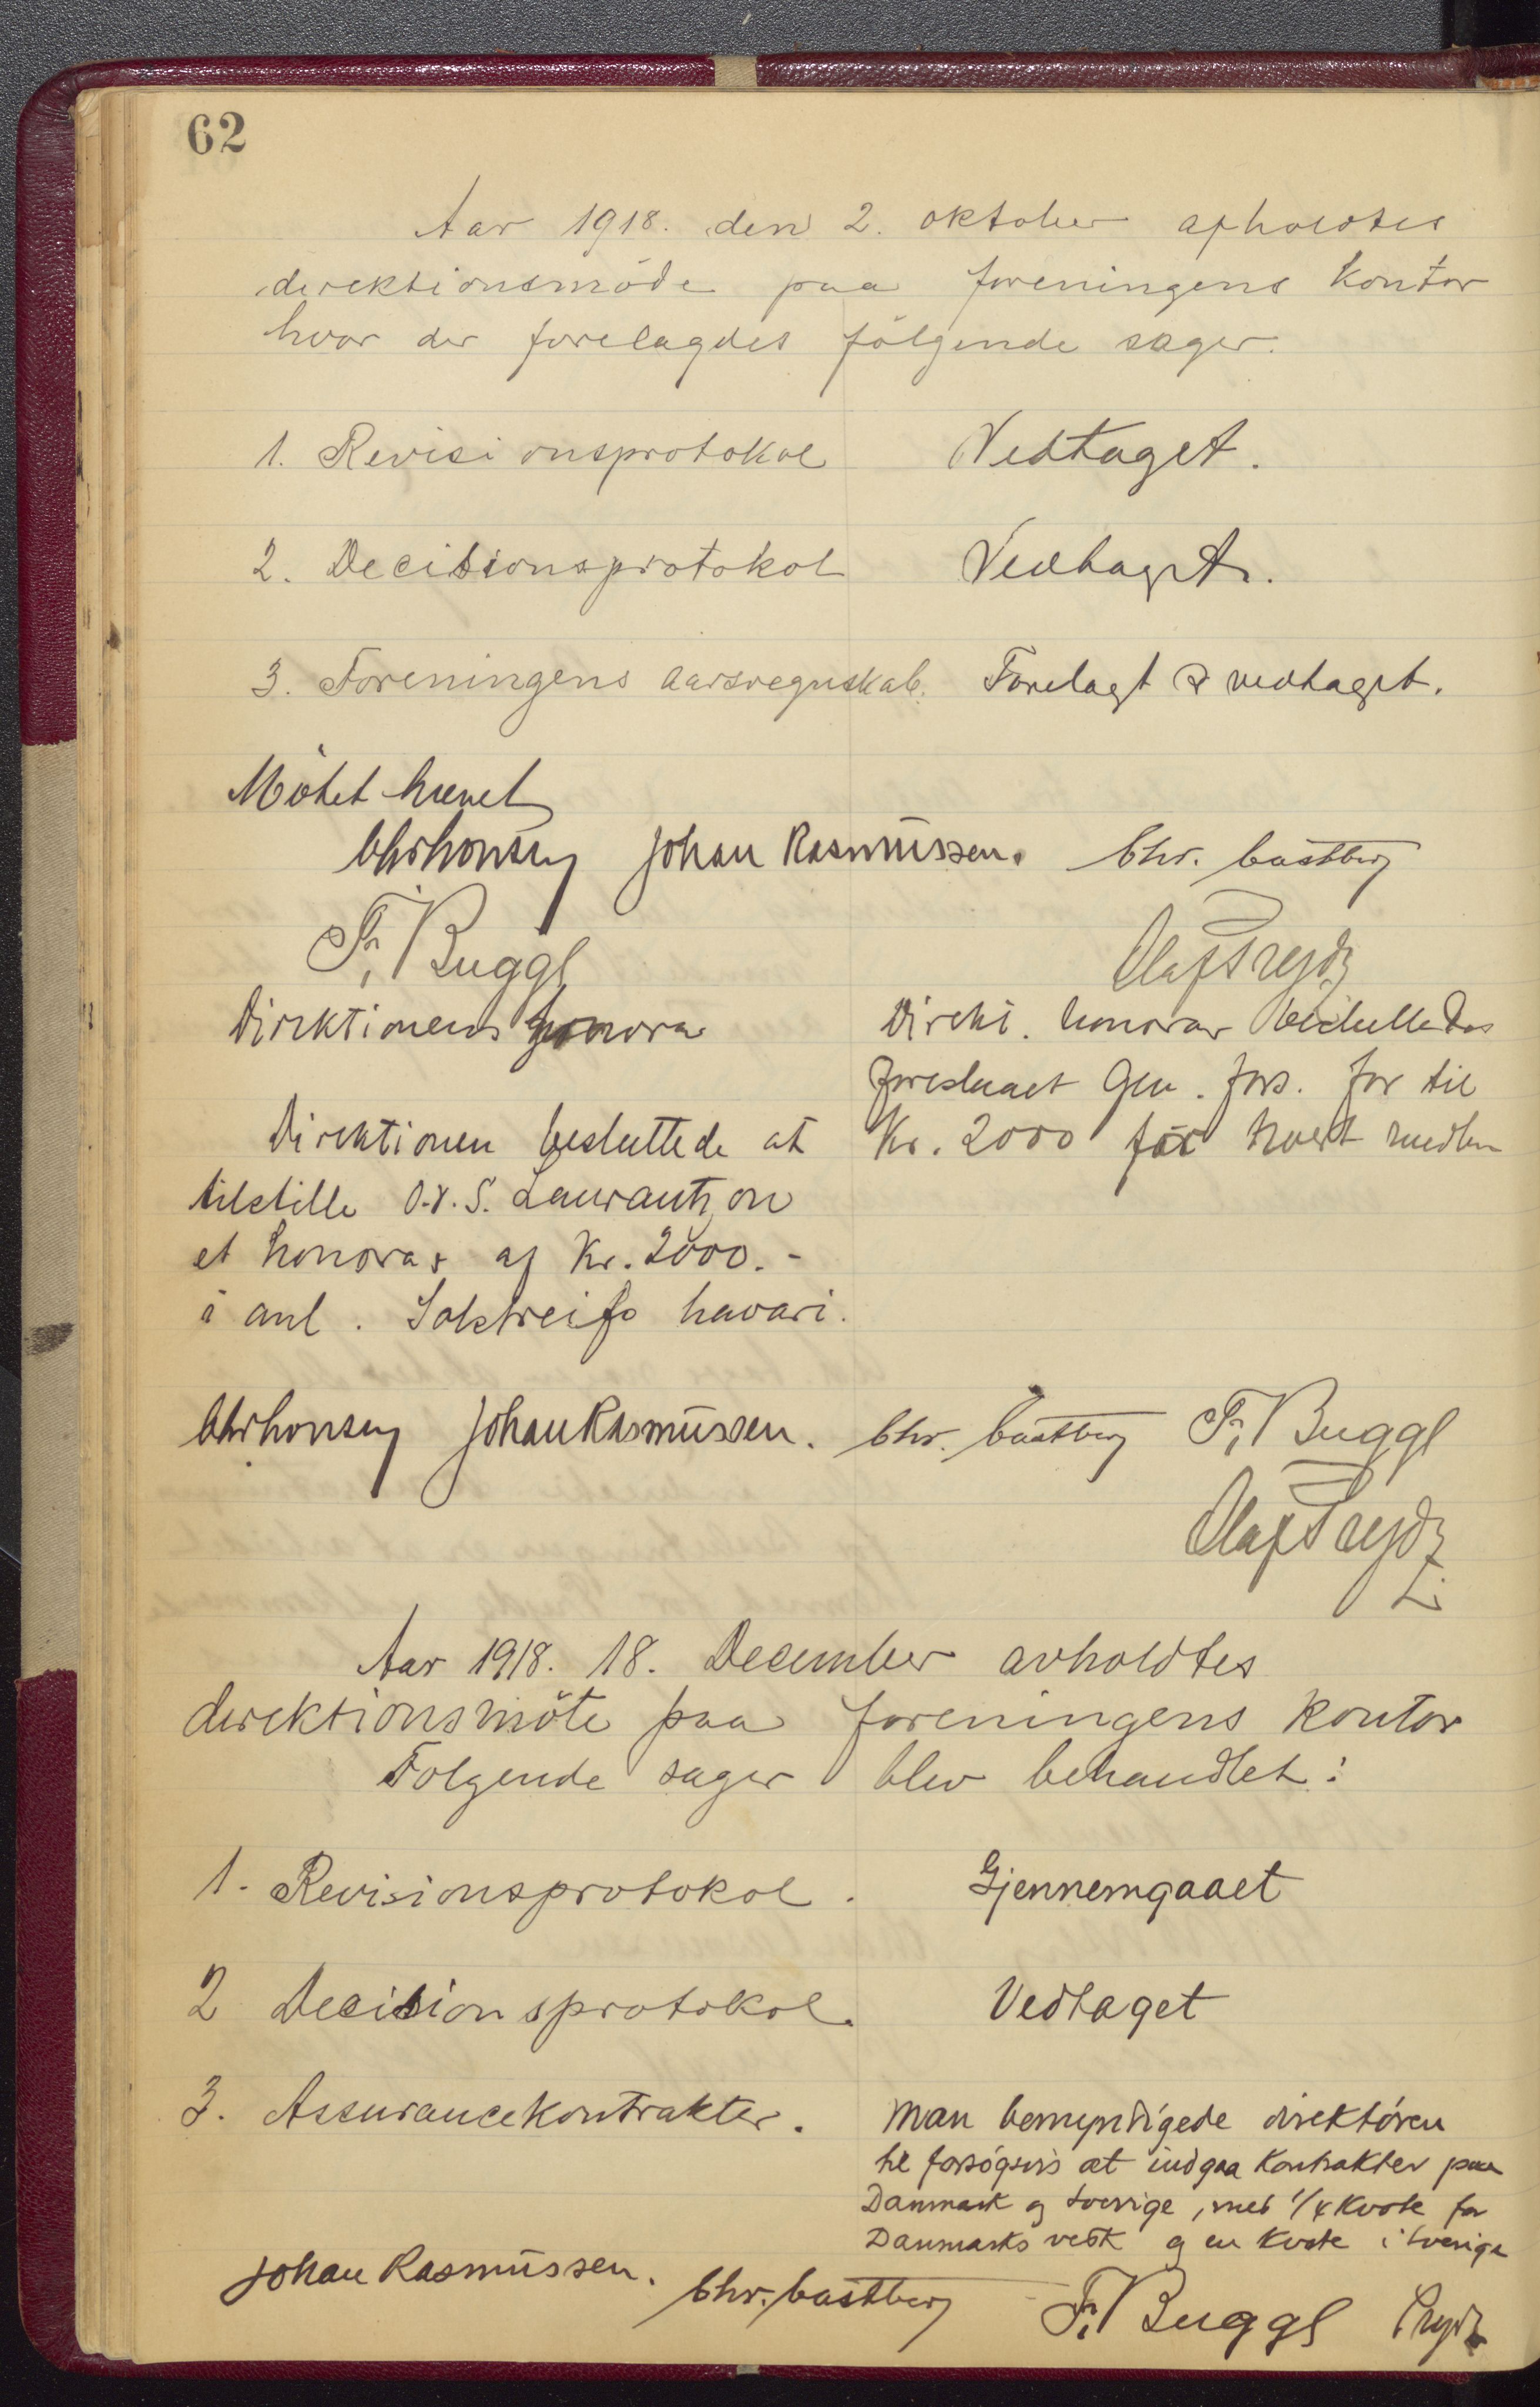 62
Aar 1918. den 2. oktober afholdtes
direktionsmöde paa foreningens Kontor
hvor der forelagdes fölgende sager.
1. Revisionsprotokol Vedtaget.
2. Decisionsprotokol Vedtaget.
3. Foreningens aarsregnskab. Forelagt & vedtaget.
Mötet hævet
Johan Rasmüssen. Chr. Castberg
F. Bugge
Olaf Prydz
Direktionens honorar
Direkt. honorar besluttedes
foreslaaet Gen. fors. for til
Kr. 2000 for hvert medlem
Direktionen besluttede at
tilstille O.r.S. Laurantzon
et honorar af Kr. 2000.-
i anl. Solstreifs havari.
Johan Rasmüssen. Chr. Castberg F. Bugge
Olaf Prydz
Aar 1918. 18. December avholdtes
direktionsmöte paa foreningens kontor
Folgende sager blev behandlet:
1. Revisionsprotokol. Gjennemgaaet
2 Decisionsprotokol. Vedtaget
3. Assurancekontrakter. Man bemyndigede direktören
til forsögsvis at indgaa Kontrakter paa
Danmark og Sverige, med 1/4 Kvote for
Danmarks vedk og en Kvote i Sverige
Johan Rasmüssen. Chr. Castberg F. Bugge Prydz